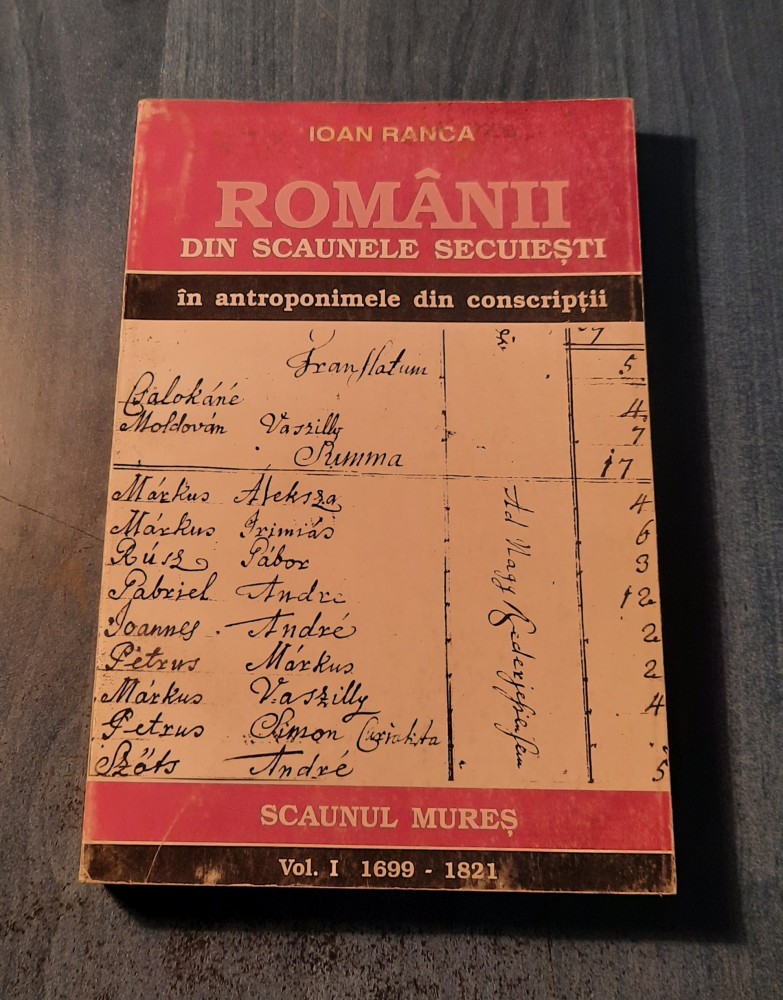 IOAN RANCA
ROMÂNII
DIN SCAUNELE SECUIEȘTI
în antroponimele din conscripții
7
Translatum 5
Csalokáné 4
Moldován Vaszilly 7
Summa 17
Márkus Aleksza 4
Márkus Irimiás 6
Rúsz Gábor 3
Gabriel André 12
Joannes André 2
Petrus Márkus 2
Márkus Vaszilly 4
Petrus Simon
Szőts André 5
Ad Nagy
SCAUNUL MUREȘ
Vol. I 1699 - 1821